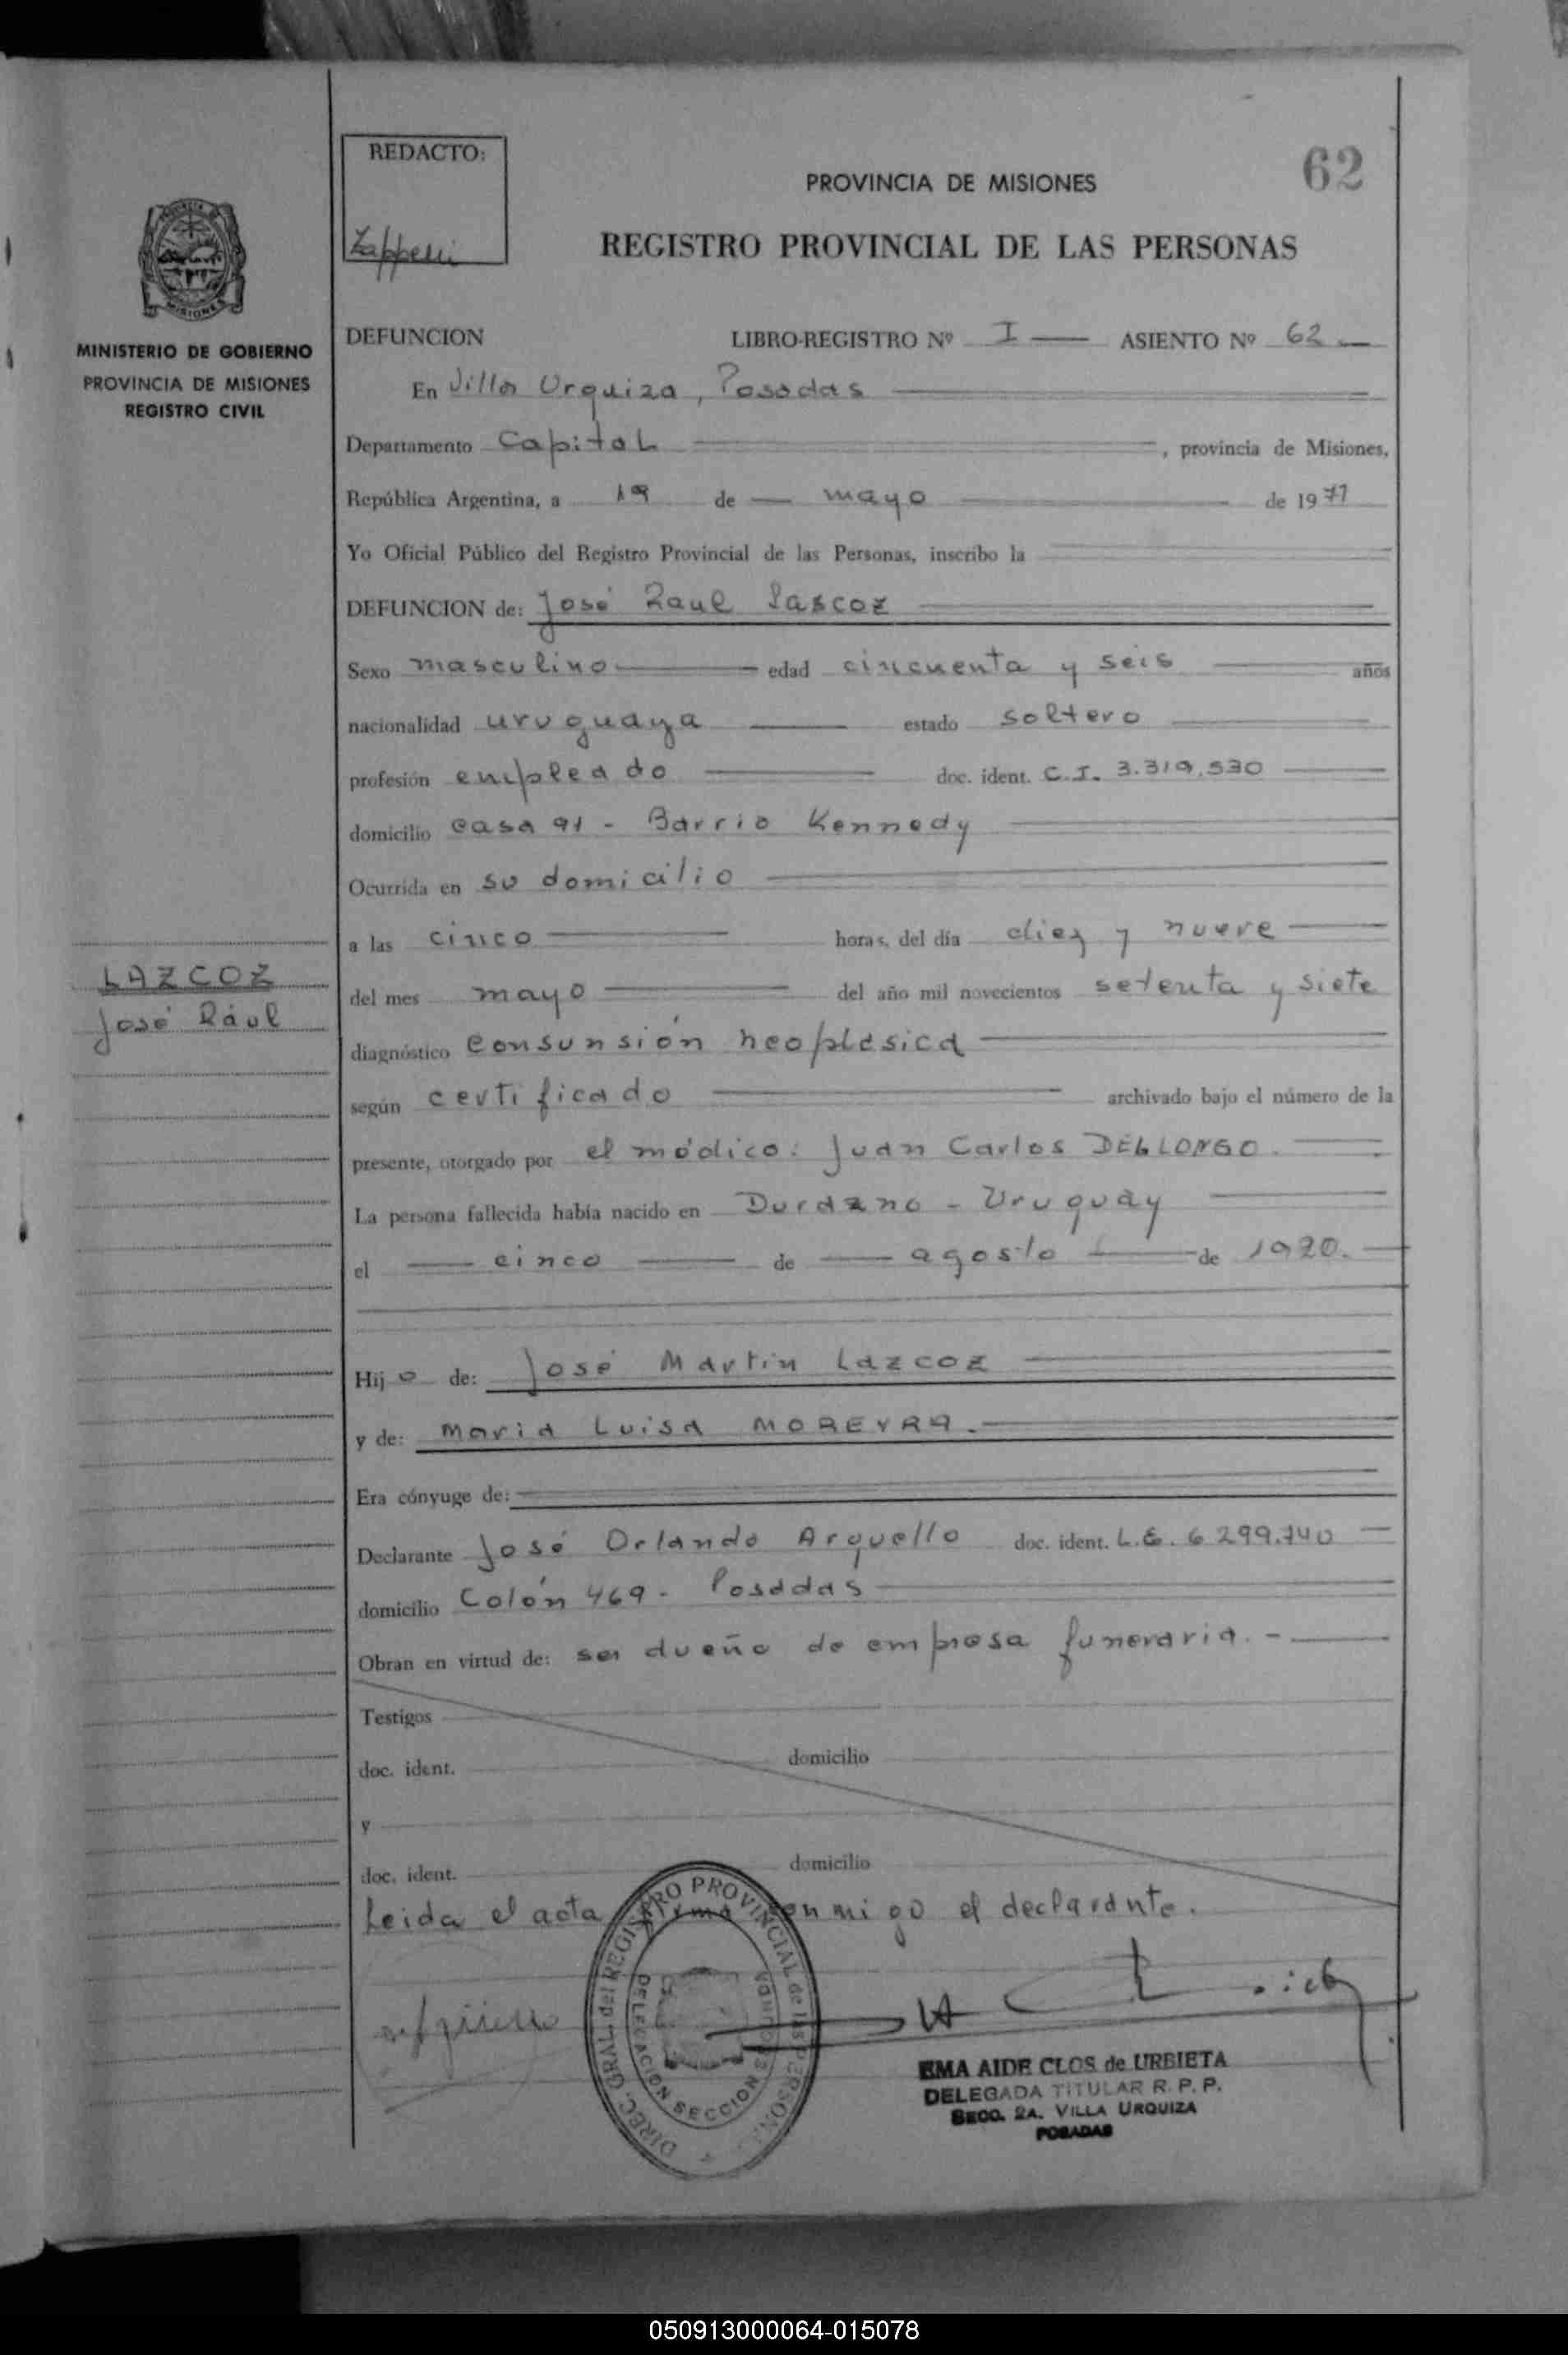 REDACTO:
62
PROVINCIA DE MISIONES
Zappelli
REGISTRO PROVINCIAL DE LAS PERSONAS
MINISTERIO DE GOBIERNO
PROVINCIA DE MISIONES
REGISTRO CIVIL
DEFUNCION LIBRO-REGISTRO Nº I ASIENTO Nº 62
En Villa Urquiza, Posadas
Departamento Capital , provincia de Misiones,
República Argentina, a 19 de mayo de 1977
Yo Oficial Público del Registro Provincial de las Personas, inscribo la
DEFUNCION de: José Raul Lascoz
Sexo masculino edad cincuenta y seis años
nacionalidad uruguaya estado soltero
profesión empleado doc. ident. C.I. 3.319.530
domicilio casa 91 - Barrio Kennedy
Ocurrida en su domicilio
a las cinco horas, del día diez y nueve
LAZCOZ
José Rául
del mes mayo del año mil novecientos setenta y siete
diagnóstico Consunsión neoplásica
según certificado archivado bajo el número de la
presente, otorgado por el médico: Juan Carlos DELLONGO.
La persona fallecida había nacido en Durazno - Uruguay
el cinco de agosto de 1920.
Hijo de: José Martín Lazcoz
y de: María Luisa MOREYRA.
Era cónyuge de:
Declarante José Orlando Arguello doc. ident. L.E. 6 299.740
domicilio Colón 469 - Posadas
Obran en virtud de: ser dueño de empresa funeraria. -
Testigos
doc. ident. domicilio
y
doc. ident. domicilio
Leida el acta firma conmigo el declarante.
DIREC. GRAL. del REGISTRO PROVINCIAL de las PERSONAS
DELEGACION SECCION SEGUNDA
EMA AIDE CLOS de URBIETA
DELEGADA TITULAR R. P. P.
SECC. 2A. VILLA URQUIZA
POSADAS
050913000064-015078